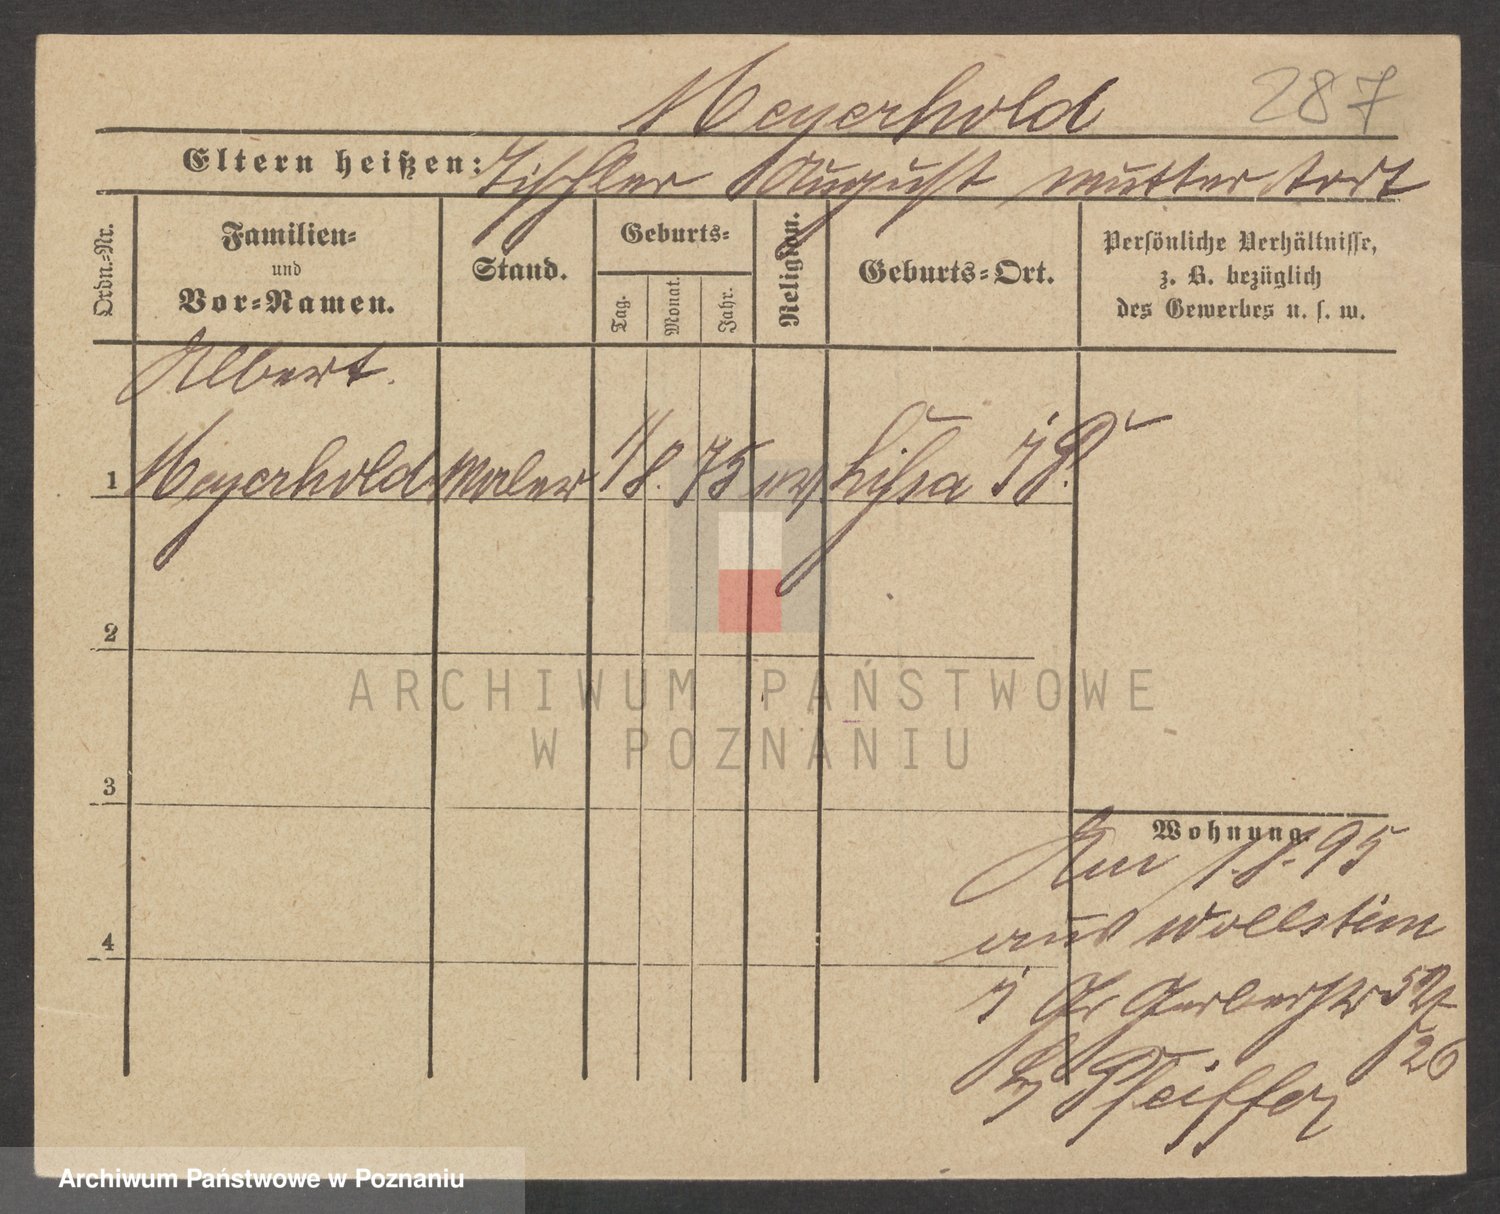 Meyerhold
287
Eltern heißen: Tischler August mutter tot
Ordn.-Nr.
Familien-
und
Vor-Namen.
Stand.
Geburts-
Tag.
Monat.
Jahr.
Religion.
Geburts-Ort.
Persönliche Verhältnisse,
z. B. bezüglich
des Gewerbes u. s. w.
Albert.
1 Meyerhold Maler 1/8. 75 ev Lissa i P.
2
3
4
Wohnung.
1.8.95
aus Wollstein
Gr Gerberstr
Pfeiffer
26
ARCHIWUM PAŃSTWOWE
W POZNANIU
Archiwum Państwowe w Poznaniu